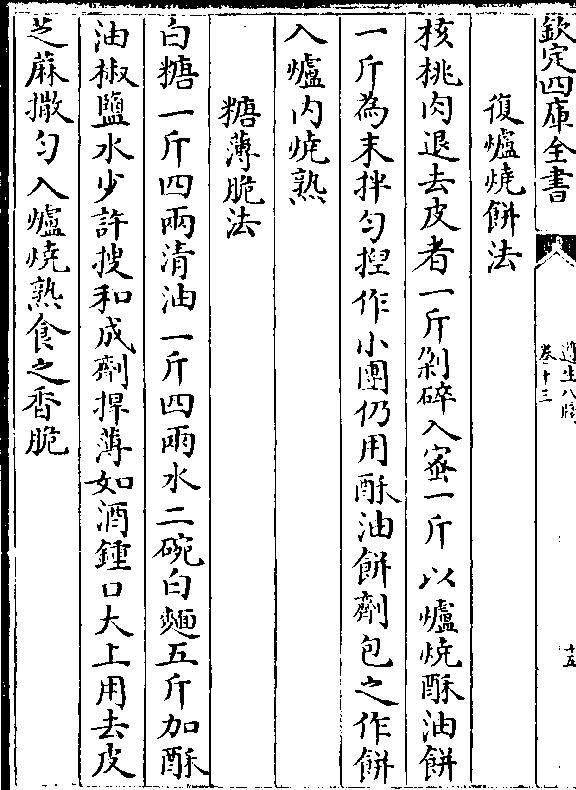 欽定四庫全書
遵生八牋
卷十三
十五
復爐燒餅法
核桃肉退去皮者一斤剁碎入蜜一斤以爐燒酥油餅
一斤為末拌勻揑作小團仍用酥油餅劑包之作餅
入爐内燒熟
糖薄脆法
白糖一斤四兩清油一斤四兩水二碗白麵五斤加酥
油椒鹽水少許搜和成劑捍薄如酒鍾口大上用去皮
芝蔴撒勻入爐燒熟食之香脆